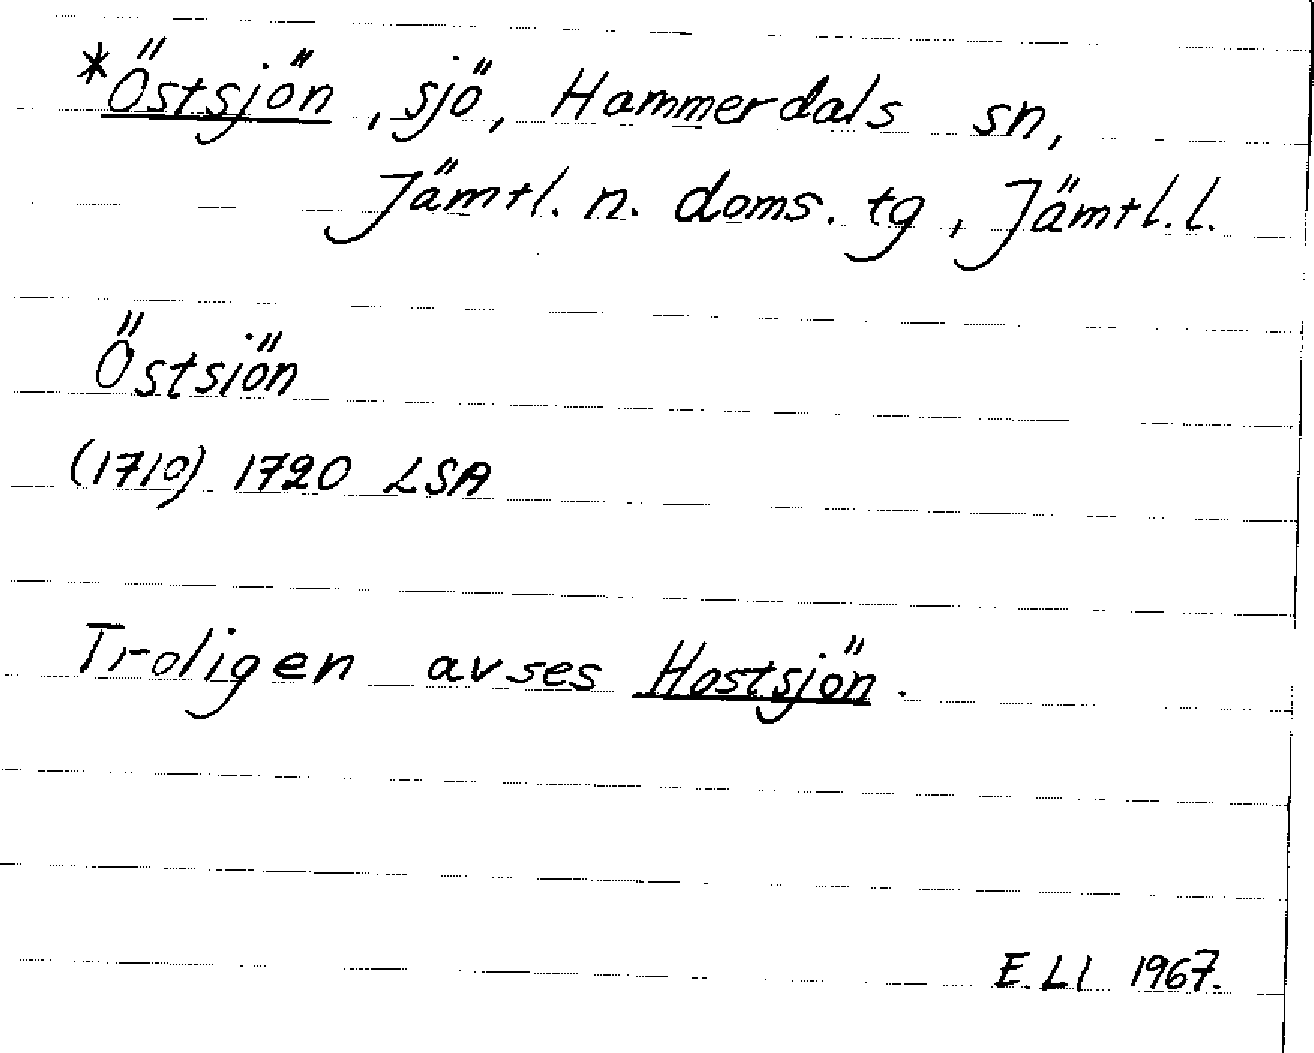 *Östsjön, sjö, Hammerdals sn,
Jämtl. n. doms. tg, Jämtl. l.
Östsiön
(1710) 1720 LSA
Troligen avses Hostsjön.
E. Ll 1967.